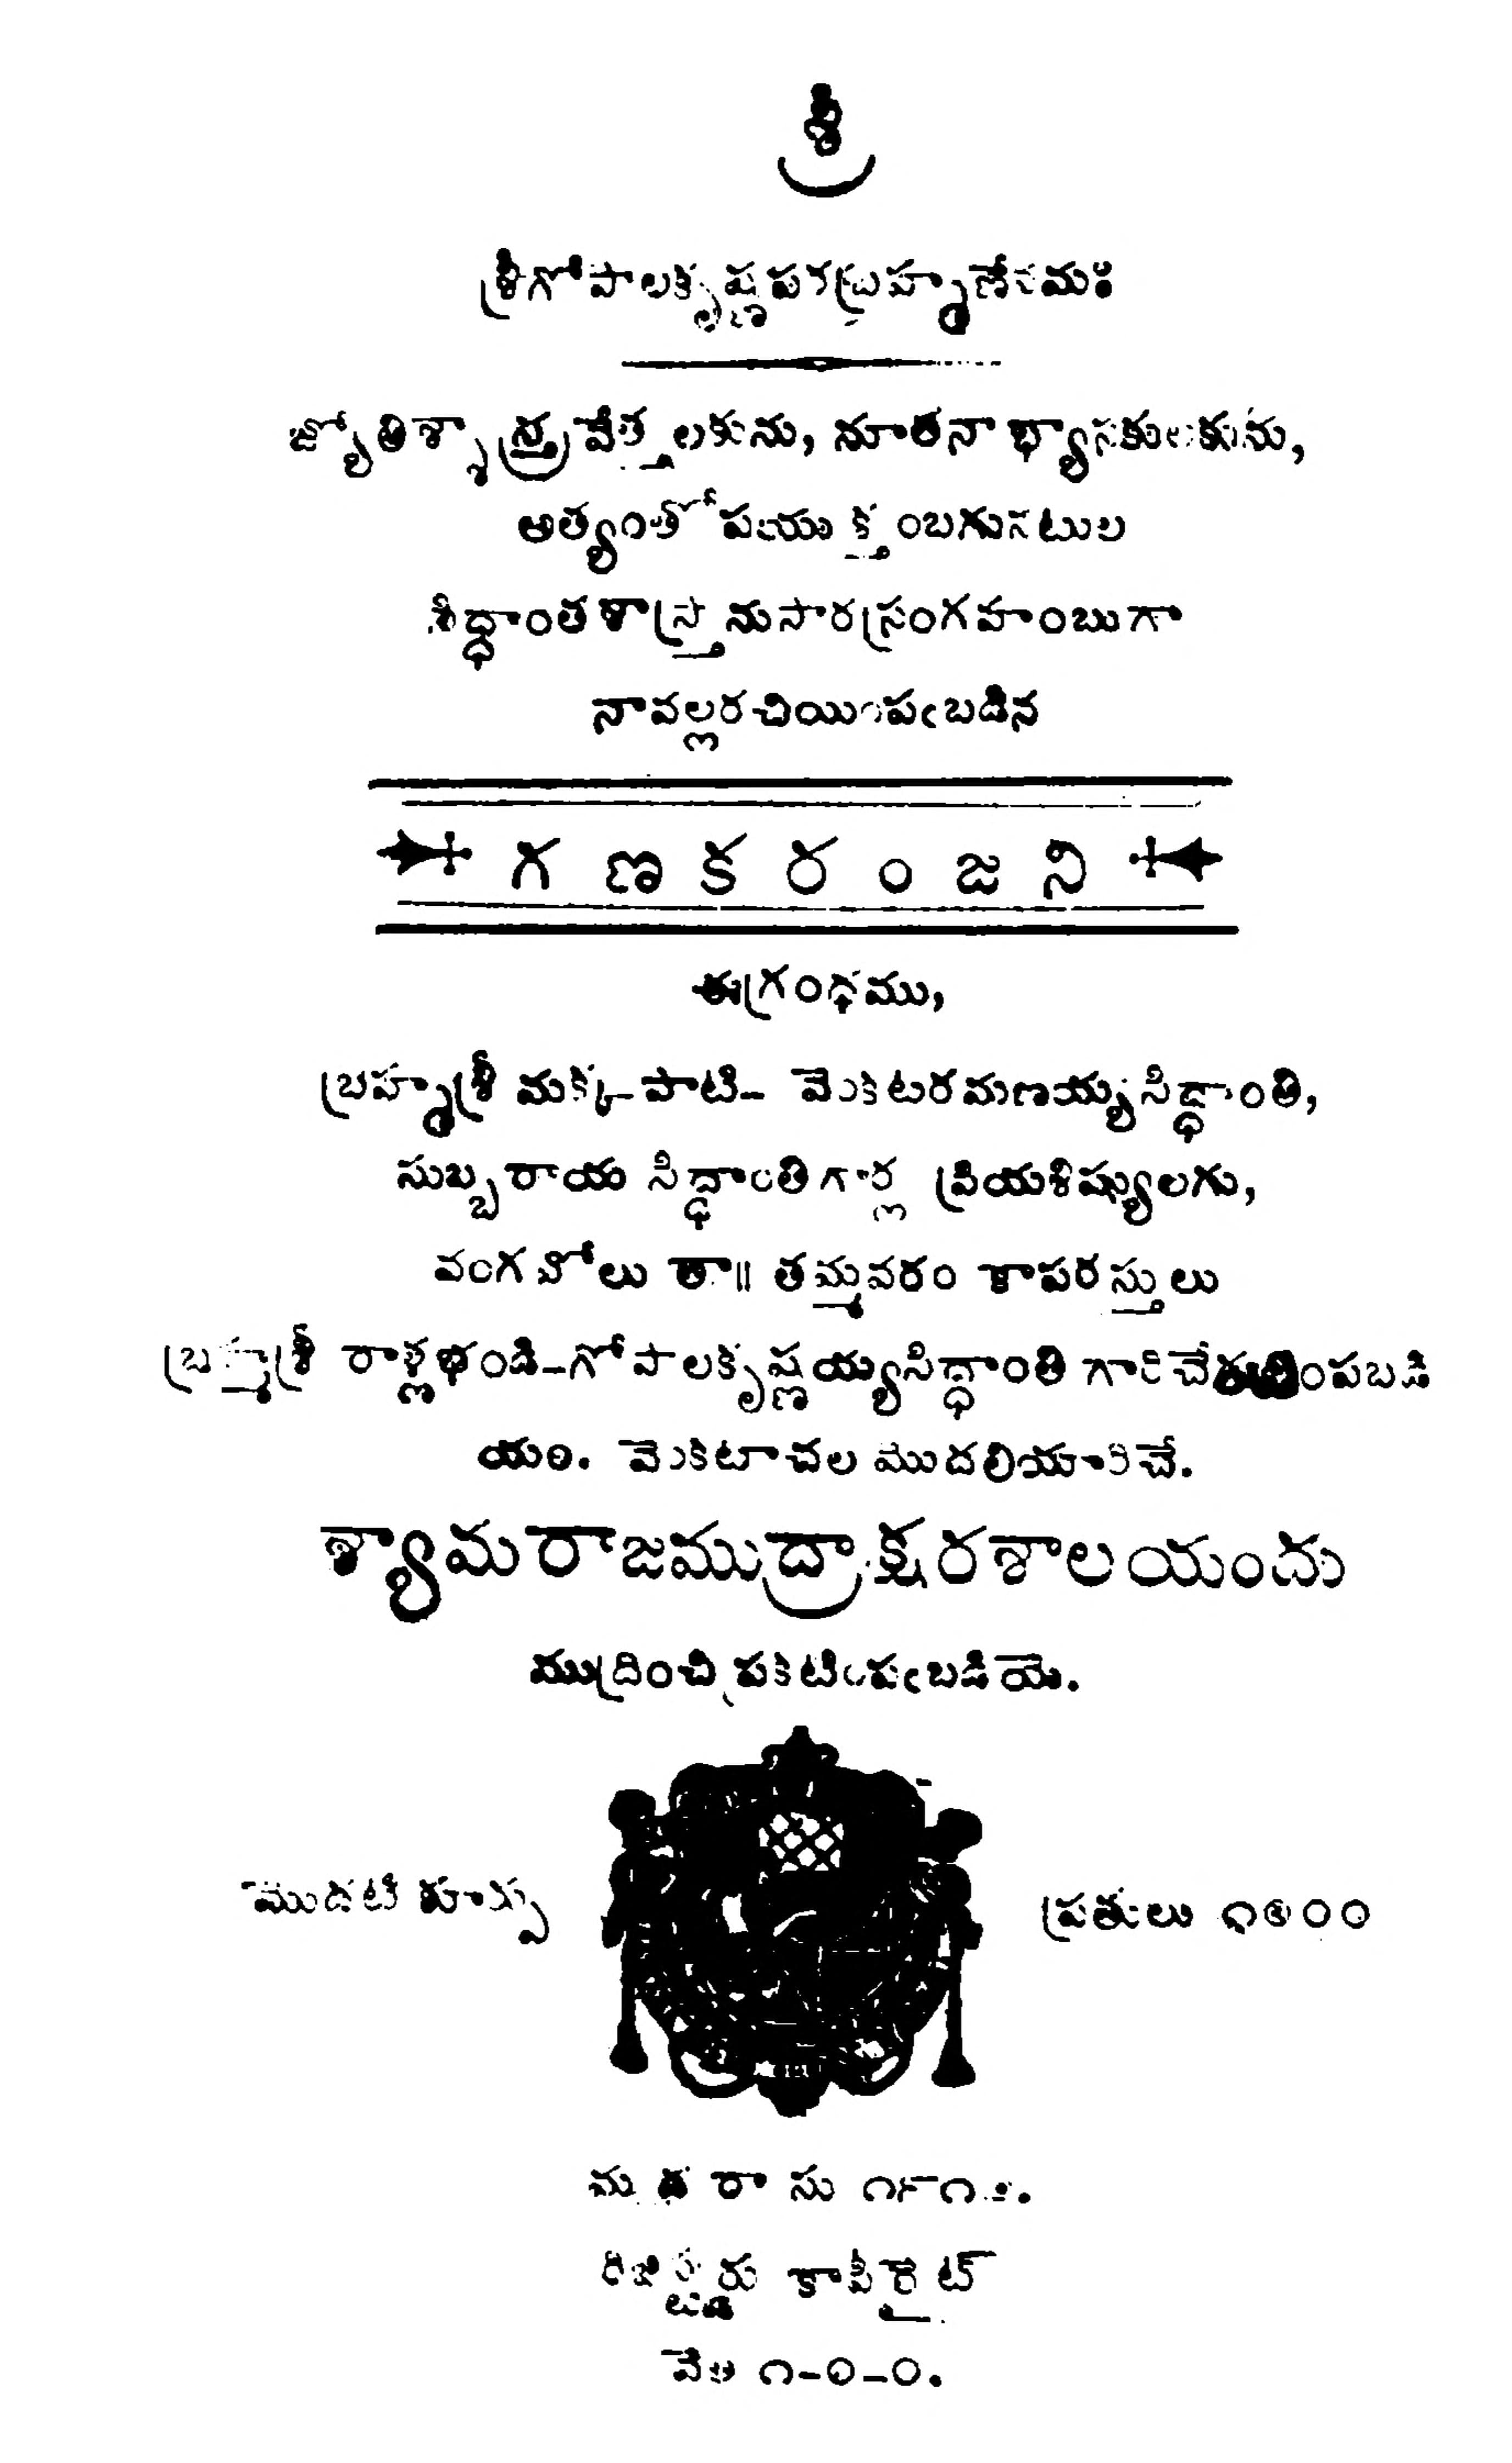 శ్రీ
శ్రీగోపాలకృష్ణపరబ్రహ్మణేనమః
జ్యోతిశ్శాస్త్రవేత్తలకును, నూతనాభ్యాసకులకును,
అత్యంతోపయుక్తంబగునటుల
సిద్ధాంతశాస్త్రానుసారస్రంగహంబుగా
నావల్లరచియింపఁబడిన
గణకరంజని
ఈగ్రంధము,
బ్రహ్మశ్రీ మక్కపాటి- వెంకటరమణయ్యసిద్ధాంతి,
సుబ్బరాయ సిద్ధాంతిగార్ల ప్రియశిష్యులగు,
వంగవోలు తా॥ తమ్మవరం కాపరస్తులు
బ్రహ్మశ్రీ రాళ్లభండి-గోపాలకృష్ణయ్యసిద్ధాంతి గారిచే
యరి. వెంకటాచల మొదలియారిచే.
శ్యామరాజముద్రాక్షరశాలయందు
ముద్రించి ప్రకటింపఁబడియె.
మొదటి కూర్పు
ప్రతులు
మదరాసు
రిజిస్టర్డు కాపీరైట్
వెల ౧-౦-౦.